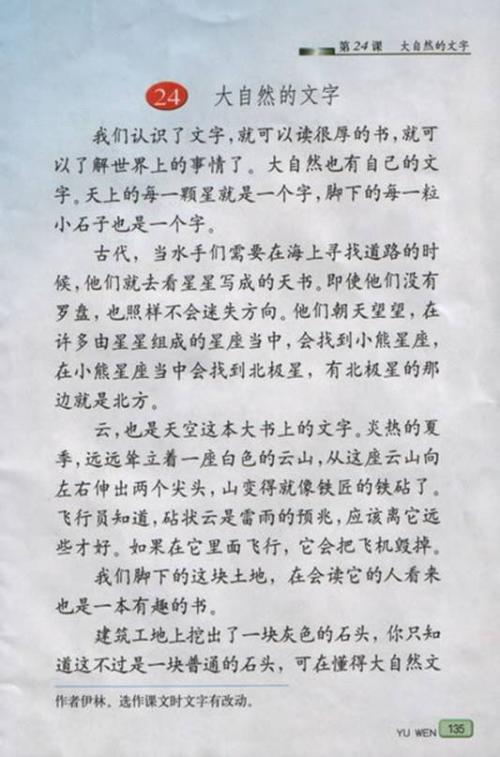 第24课 大自然的文字
24 大自然的文字
我们认识了文字,就可以读很厚的书,就可
以了解世界上的事情了。大自然也有自己的文
字。天上的每一颗星就是一个字,脚下的每一粒
小石子也是一个字。
古代，当水手们需要在海上寻找道路的时
候,他们就去看星星写成的天书。即使他们没有
罗盘，也照样不会迷失方向。他们朝天望望，在
许多由星星组成的星座当中，会找到小熊星座，
在小熊星座当中会找到北极星，有北极星的那
边就是北方。
云，也是天空这本大书上的文字。炎热的夏
季，远远耸立着一座白色的云山，从这座云山向
左右伸出两个尖头，山变得就像铁匠的铁砧了。
飞行员知道，砧状云是雷雨的预兆，应该离它远
些才好。如果在它里面飞行，它会把飞机毁掉。
我们脚下的这块土地，在会读它的人看来
也是一本有趣的书。
建筑工地上挖出了一块灰色的石头，你只知
道这不过是一块普通的石头，可在懂得大自然文
作者伊林。选作课文时文字有改动。
YU WEN 135